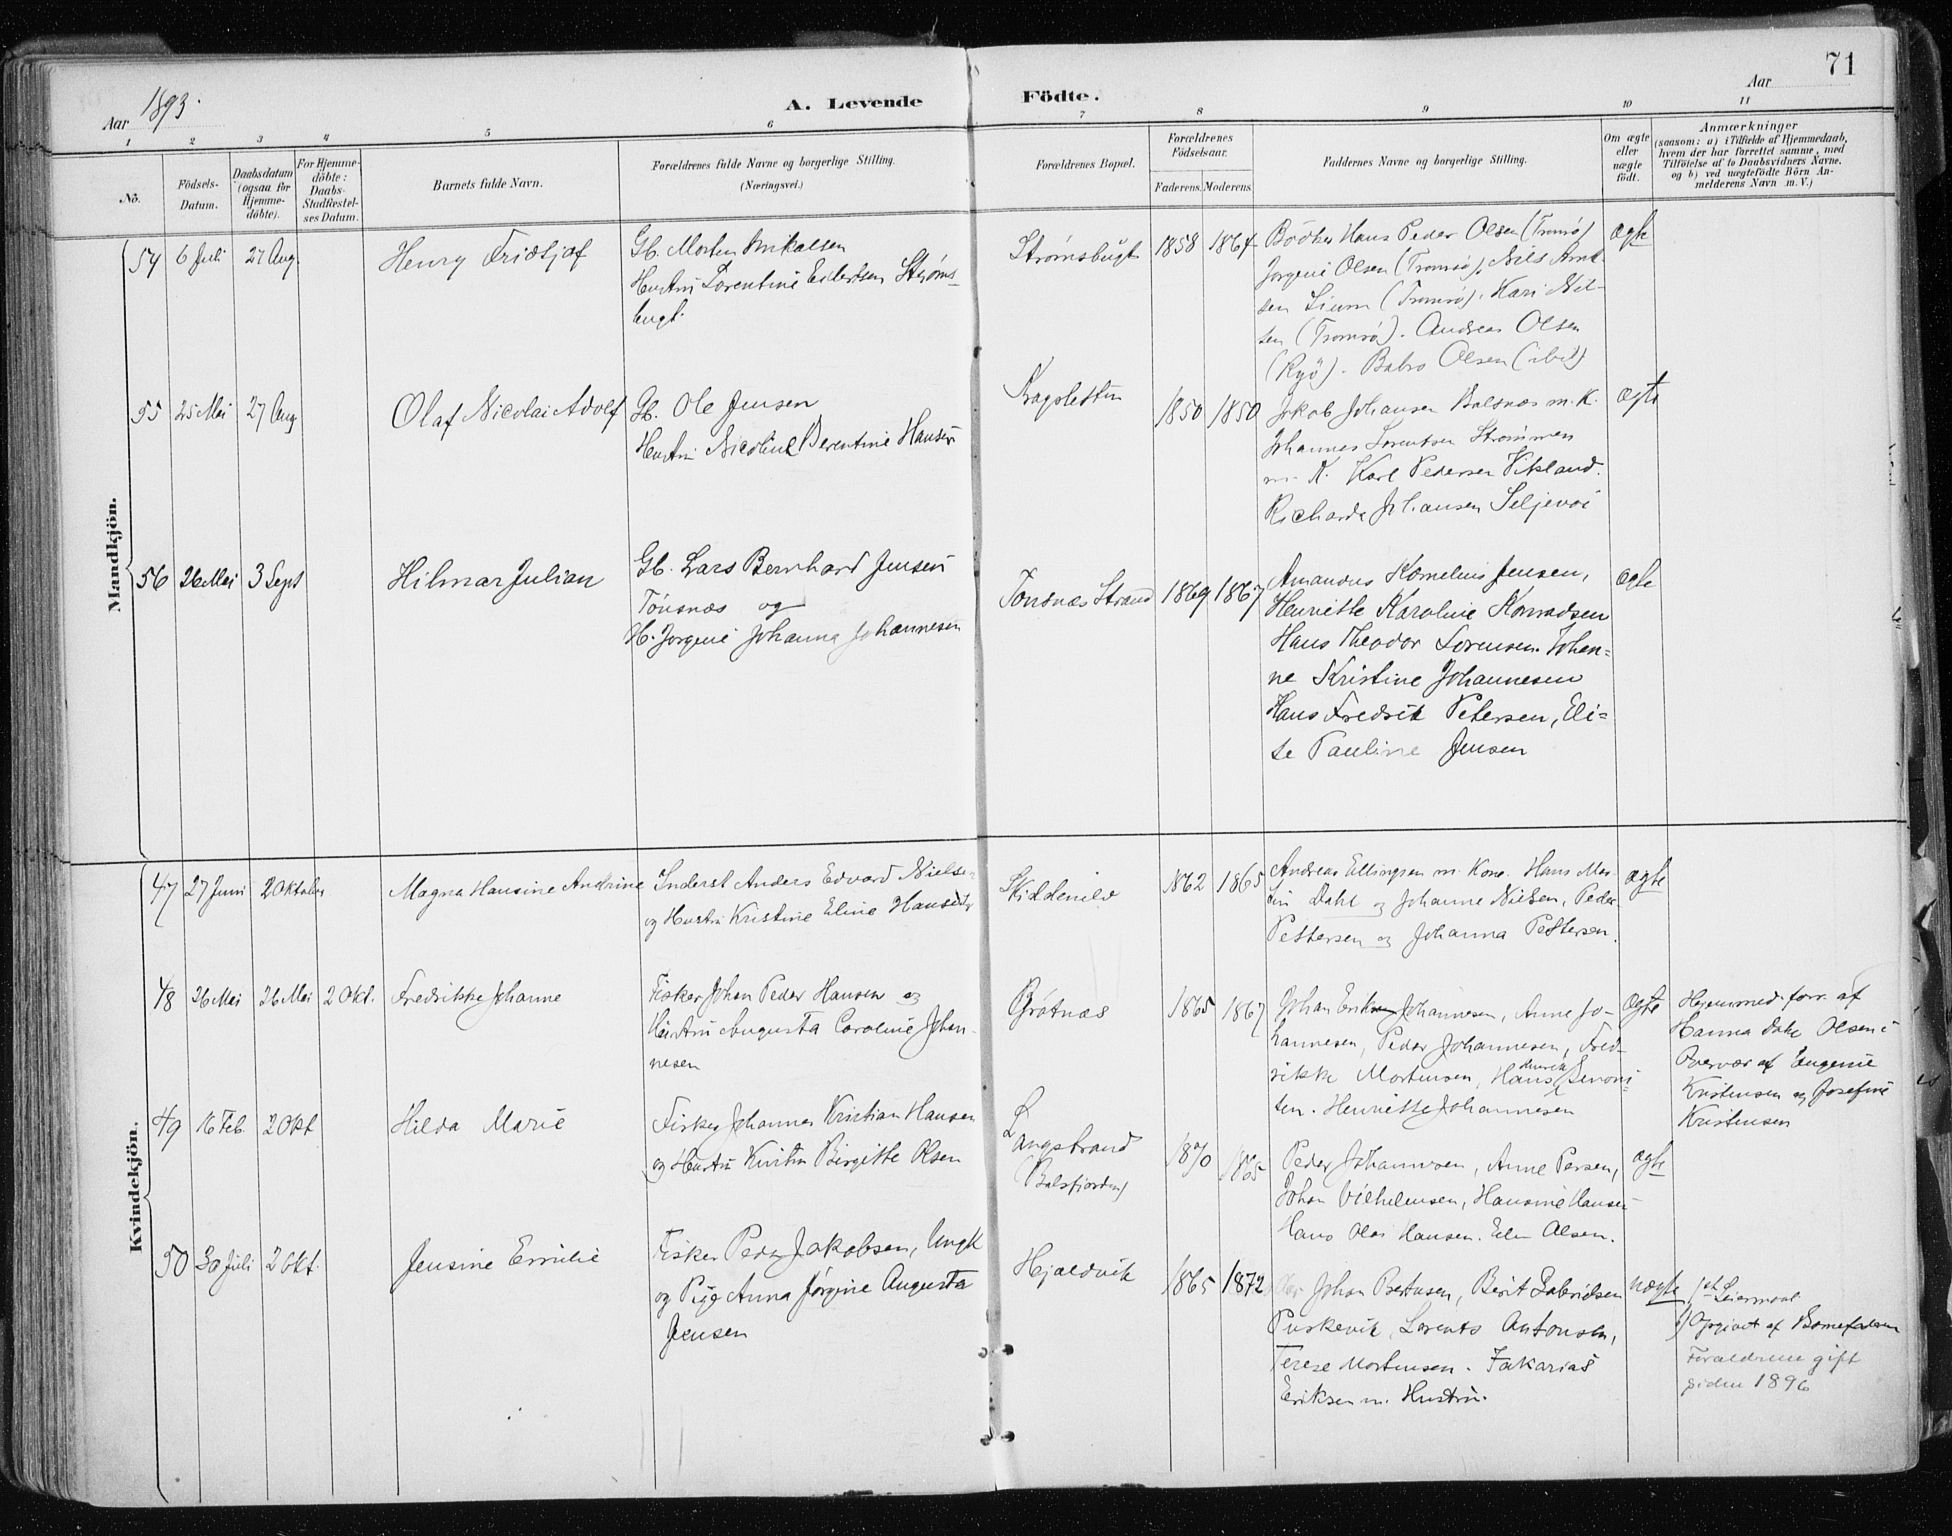 71
Aar 1893.
A. Levende Födte.
Aar
1 2 3 4 5 6 7 8 9 10 11
No.
Födsels-Datum.
Daabsdatum (ogsaa for Hjemme-döbte).
For Hjemme-döbte: Daabs-Stadfæstel-ses Datum.
Barnets fulde Navn.
Forældrenes fulde Navne og borgerlige Stilling.
(Næringsvei.)
Forældrenes Bopæl.
Forældrenes Födselsaar.
Faderens. Moderens.
Faddernes Navne og borgerlige Stilling.
Om ægte eller uægte födt.
Anmærkninger
(saasom: a) i Tilfælde af Hjemmedaab,
hvem der har forrettet samme, med
Tilföielse af to Daabsvidners Navne,
og b) ved uægtefödte Börn An-
melderens Navn m. V.)
Mandkjön.
54 6 Juli 27 Aug. Henry Fridtjof
Gb. Morten Mikalsen
Hustru Lorentine Eilertsen Strøms-
bugt.
Strømsbugt 1858 1864
Bødker Hans Peder Olsen (Tromsø)
Jørgine Olsen (Tromsø), Nils Arnt-
sen (Tromsø). Kari Nil-
sen (Tromsø). Andreas Olsen
(Ryö). Babro Olsen (ibid)
ægte
55 25 Mai 27 Aug Olaf Nicolai Adolf
Gb. Ole Jensen
Hustru Nicoline Berentine Hansen
1850 1850
Jakob Johansen Balsnæs m. K.
Johannes Lorentsen Strømmen
m. K. Karl Pedersen Vikland.
Richarda Johansen
ægte
56 26 Mai 3 Sept Hilmar Julian
Gb. Lars Bernhard Jensen
Tönsnæs og
H. Jørgine Johanna Johannesen
Tönsnæs Strand 1869 1867
Amandus Kornelius Jensen,
Henriette Karoline Konradsen
Hans Theodor Sørensen. Johan-
ne Kristine Johannesen
Hans Fredrik Petersen, Eli-
se Pauline Jensen
ægte
Kvindekjön.
47 27 Juni 2 Oktober Magna Hansine Andrine
Inderst Anders Edvard Nielsen
og Hustru Kristine Eline Hansdtr
Skiddenelv 1862 1865
Andreas Ellingsen m. Kone. Hans Mar-
tin Dahl og Johanne Nielsen, Peder
Pettersen og Johanna Pettersen.
ægte
48 26 Mai 26 Mai 2 Okt. Fredrikke Johanne
Fisker Johan Peder Hansen og
Hustru Augusta Caroline Johan-
nesen
Grötnæs 1865 1867
Johan Erik Johannesen, Anne Jo-
hannesen, Peder Johannesen, Fred-
rikke Mortensen, Hans Simoni-
sen. Henriette Johannesen
ægte
Hjemmed. forr. af
Hanna Dahl Olsen i
Overvær af Eugenie
Kristensen og Josefine
Kristensen
49 16 Feb. 2 Okt Hilda Marie
Fisker Johannes Kristian Hansen
og Hustru Birgitte Olsen
Langstrand
(Balsfjorden)
1870 1865
Peder Johannesen, Anne Persen,
Johan Vilhelmsen, Hansine Hansen
Hans Olai Hansen. Olsen.
ægte
50 30 Juli 2 Okt. Jensine Emilie
Fisker Peder Jakobsen, Ungk
og Pige Anna Jørgine Augusta
Jensen
Hjaldvik 1865 1872
Johan Berntsen, Berit Gabrielsen
Lorents Antonsen,
Terese Mortensen. Zakarias
Eriksen m. Hustru.
uægte
1st Leiermaal
Opgivet af Barnefaderen
Forældrene gift
siden 1896